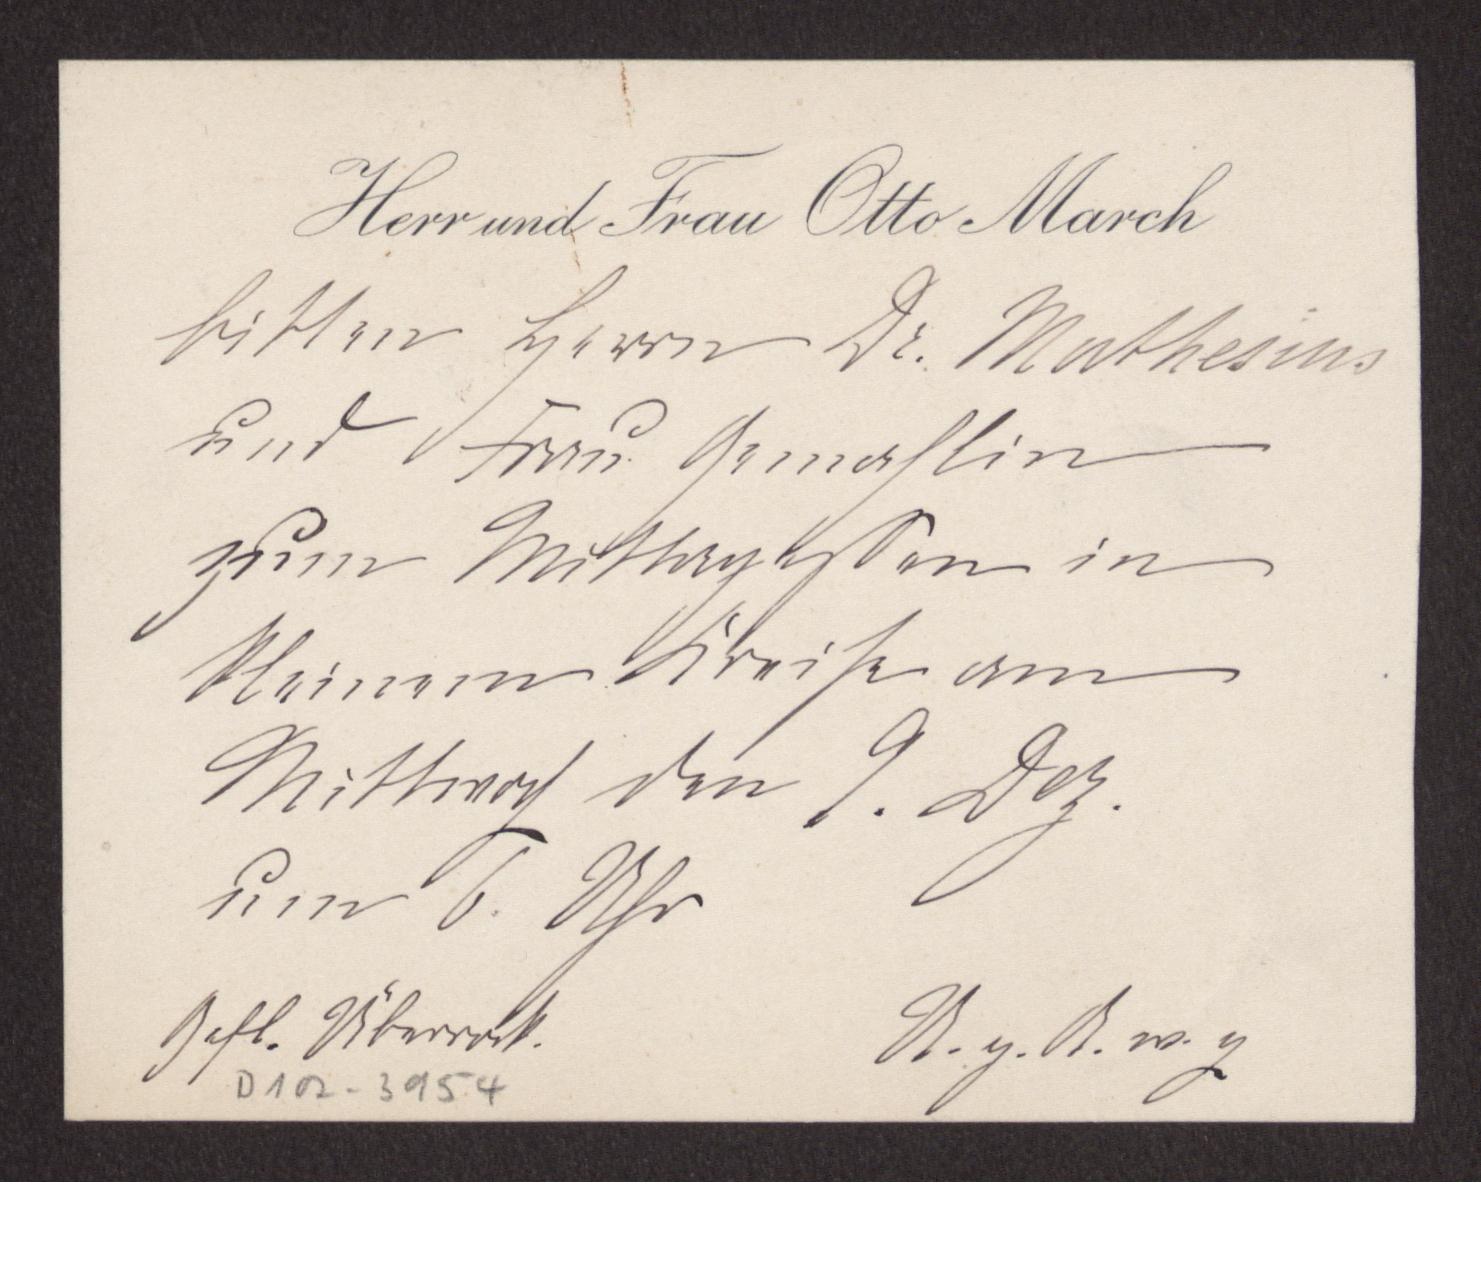 Herr und Frau Otto March
bitten Herrn Dr. Muthesius
und Frau Gemahlin
zum Mittagessen in
kleinem Kreise am
Mittwoch den 9. Dez.
um 6. Uhr
Gefl. Überrock.
U. g. A. w. g
D102-3954